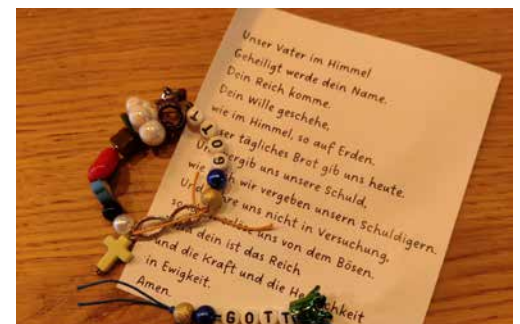 Unser Vater im Himmel
Geheiligt werde dein Name.
Dein Reich komme.
Dein Wille geschehe,
wie im Himmel, so auf Erden.
tägliches Brot gib uns heute.
uns unsere Schuld,
wir vergeben unsern Schuldigern.
uns nicht in Versuchung,
uns von dem Bösen.
dein ist das Reich
und die Kraft und die
in Ewigkeit.
Amen.
GOTT
GOTT